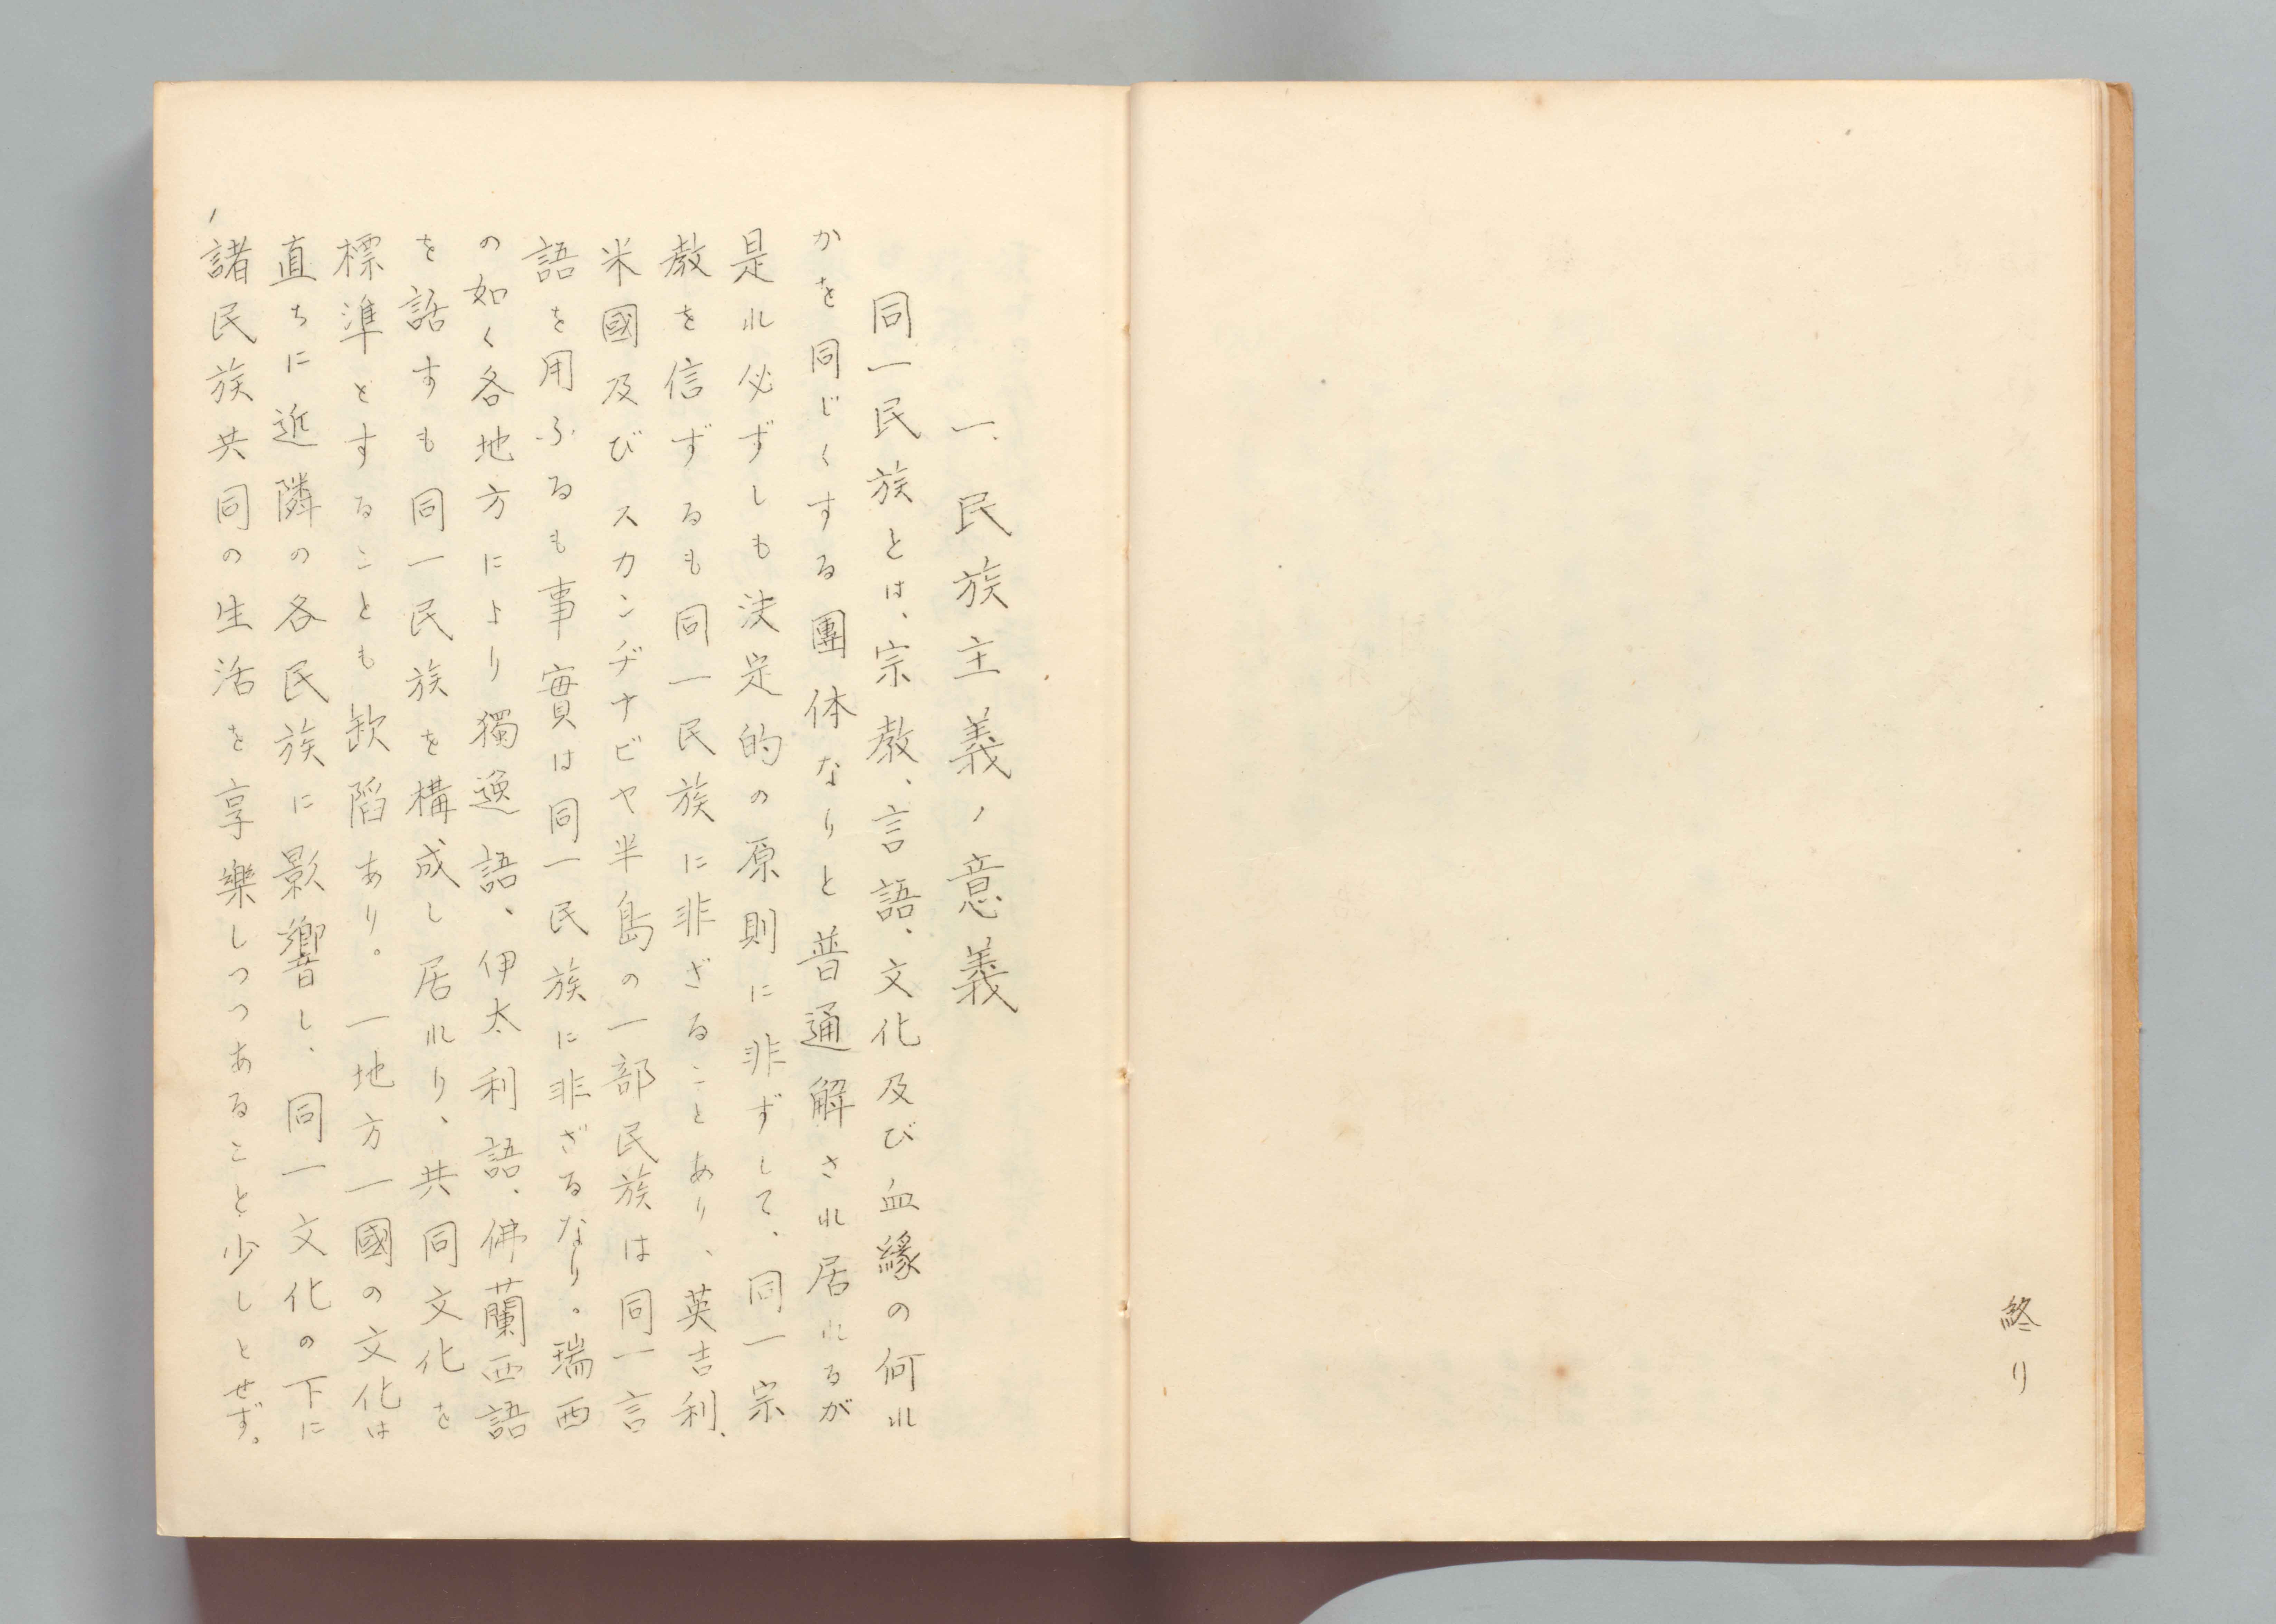 終り
一、民族主義ノ意義
同一民族とは、宗教、言語、文化及び血縁の何れ
かを同じくする團体なりと普通解され居れるが
是れ必ずしも決定的の原則に非ずして、同一宗
教を信ずるも同一民族に非ざることあり、英吉利、
米國及びスカンヂナビヤ半島の一部民族は同一言
語を用ふるも事實は同一民族に非ざるなり。瑞西
の如く各地方により獨逸語、伊太利語、佛蘭西語
を話すも同一民族を構成し居れり、共同文化を
標準とすることも缺陷あり。一地方一國の文化は
直ちに近隣の各民族に影響し、同一文化の下に
諸民族共同の生活を享樂しつつあること少しとせず。